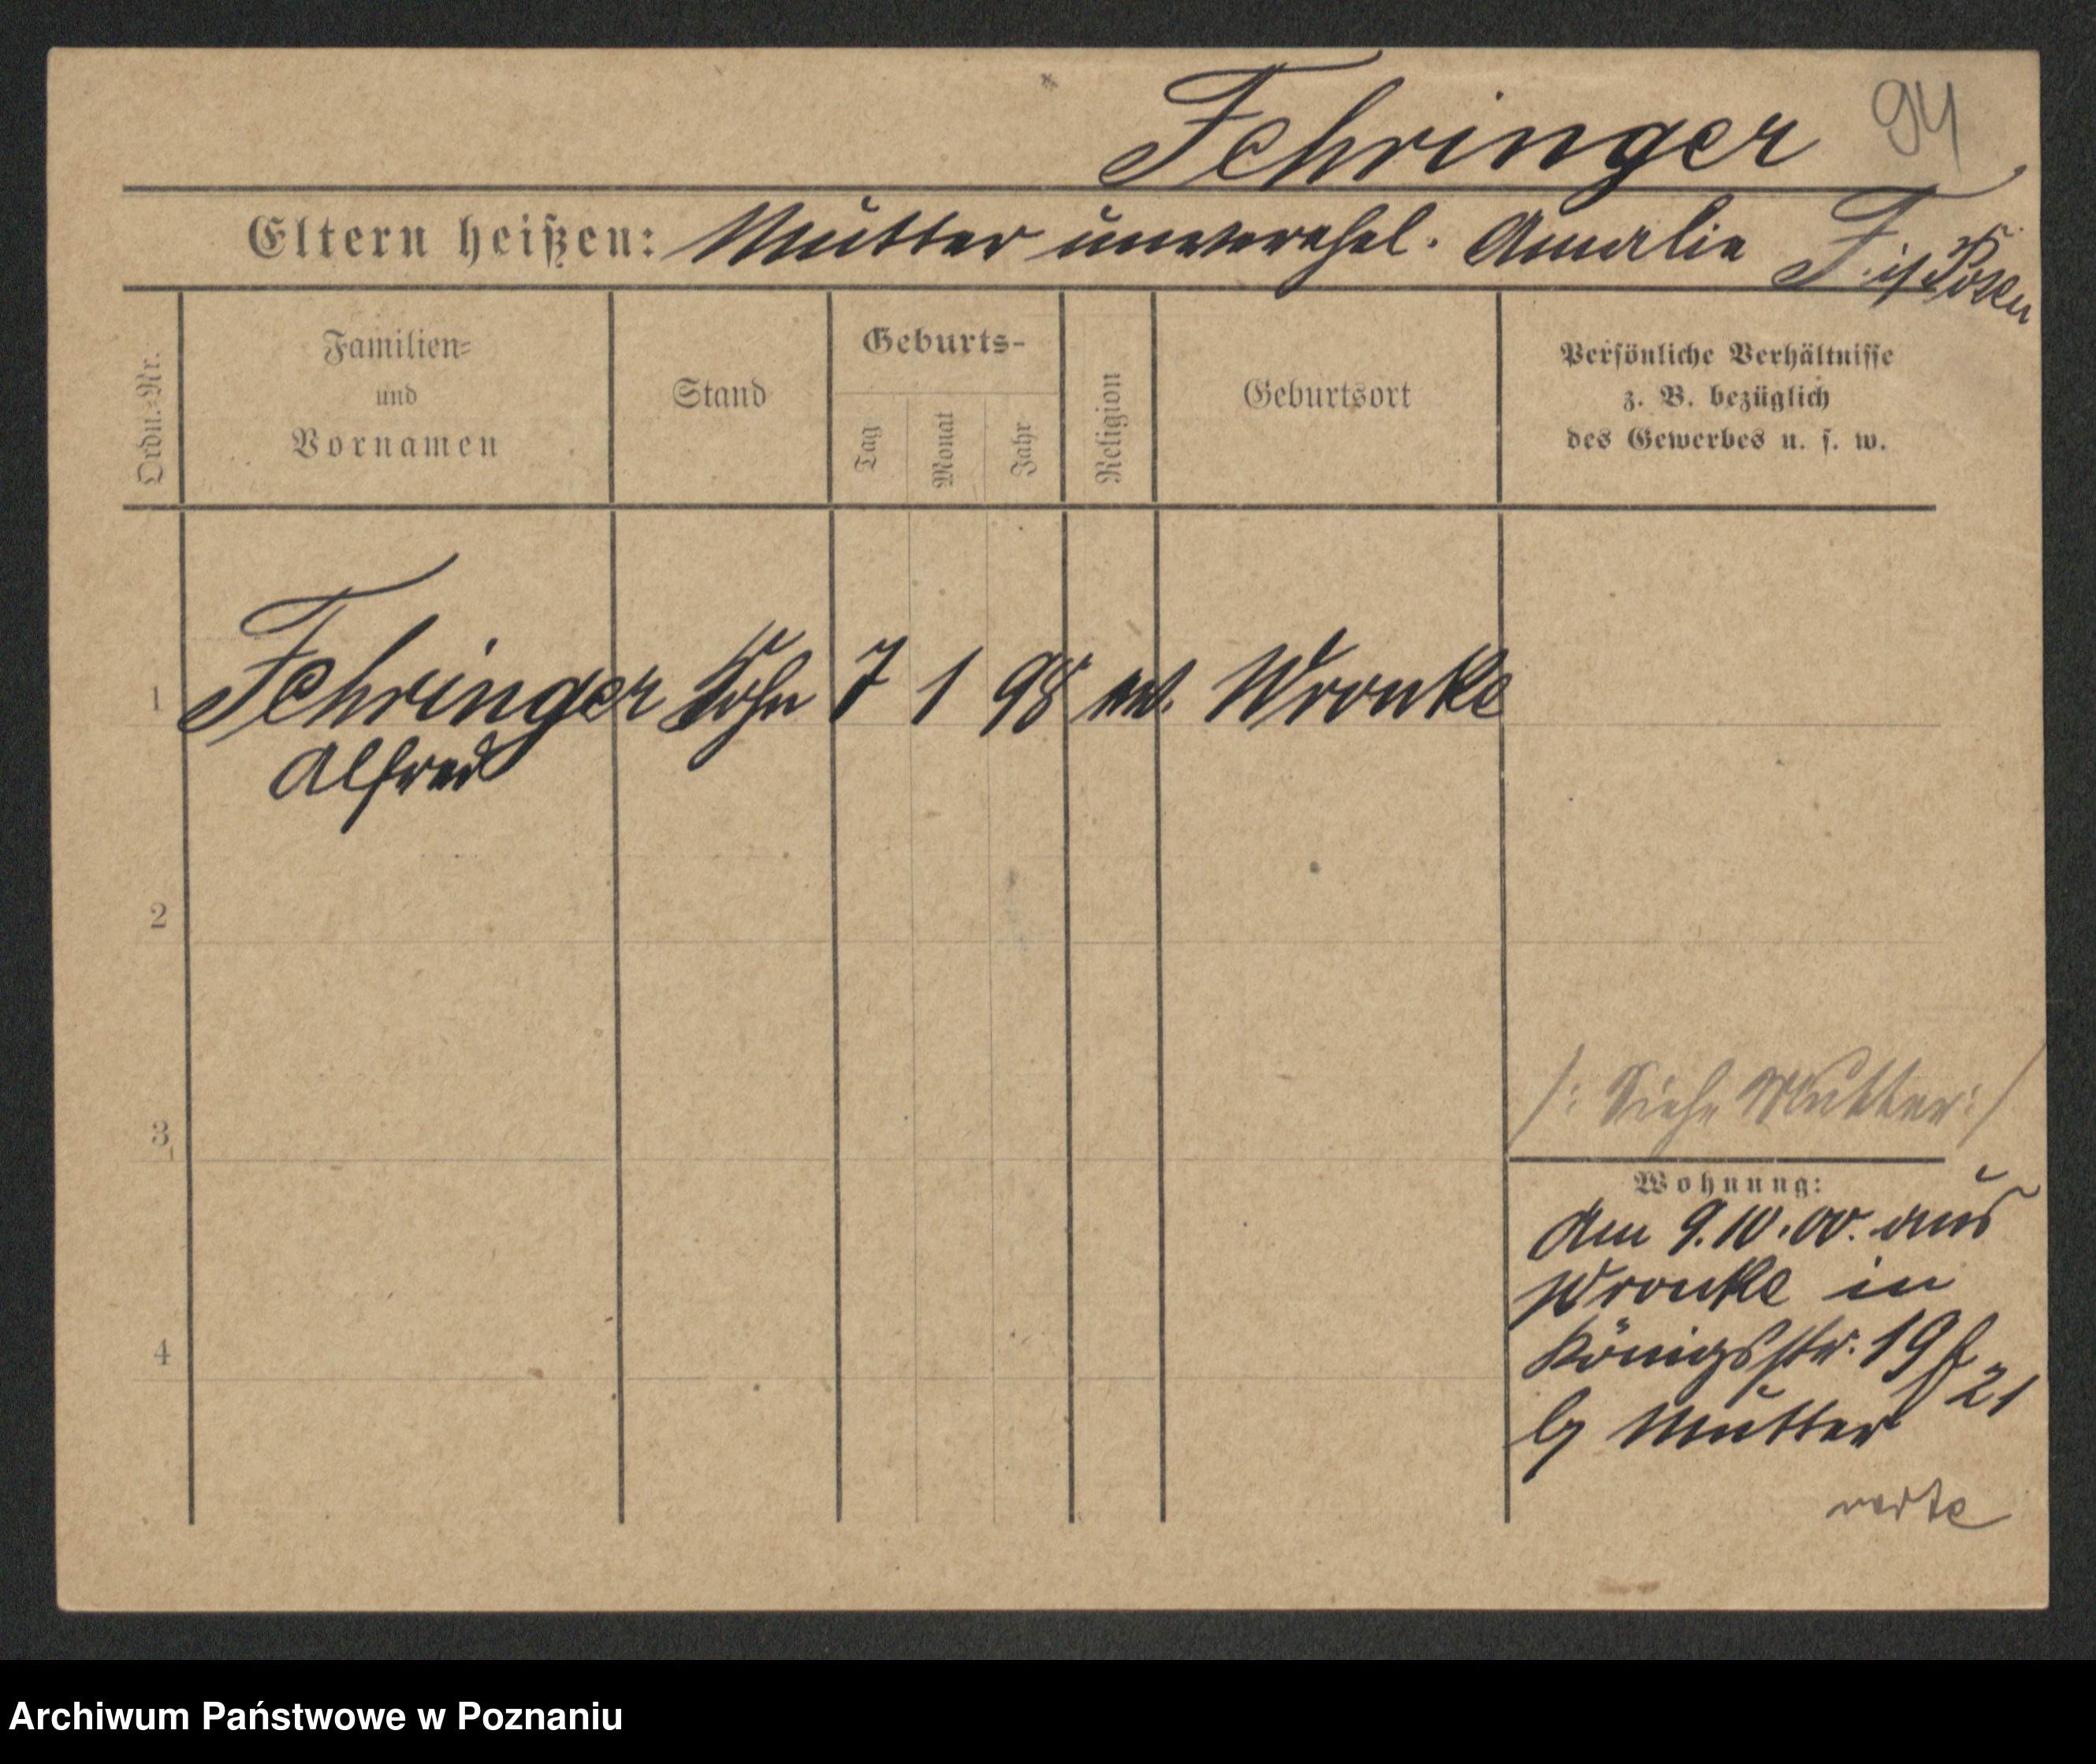 Fehringer 94
Eltern heißen: Mutter unverehel. Amalie F. in Posen
Ordn.=Nr.
Familien=
und
Vornamen
Stand
Geburts-
Tag
Monat
Jahr
Religion
Geburtsort
Persönliche Verhältnisse
z. B. bezüglich
des Gewerbes u. s. w.
1 Fehringer Sohn 7 1 98 ev. Wronke
Alfred
2
3
/: Siehe Mutter :/
Wohnung:
Am 9.10.00. aus
Wronke in
Königsstr. 19 f
21
4
b/ Mutter
verte
Archiwum Państwowe w Poznaniu